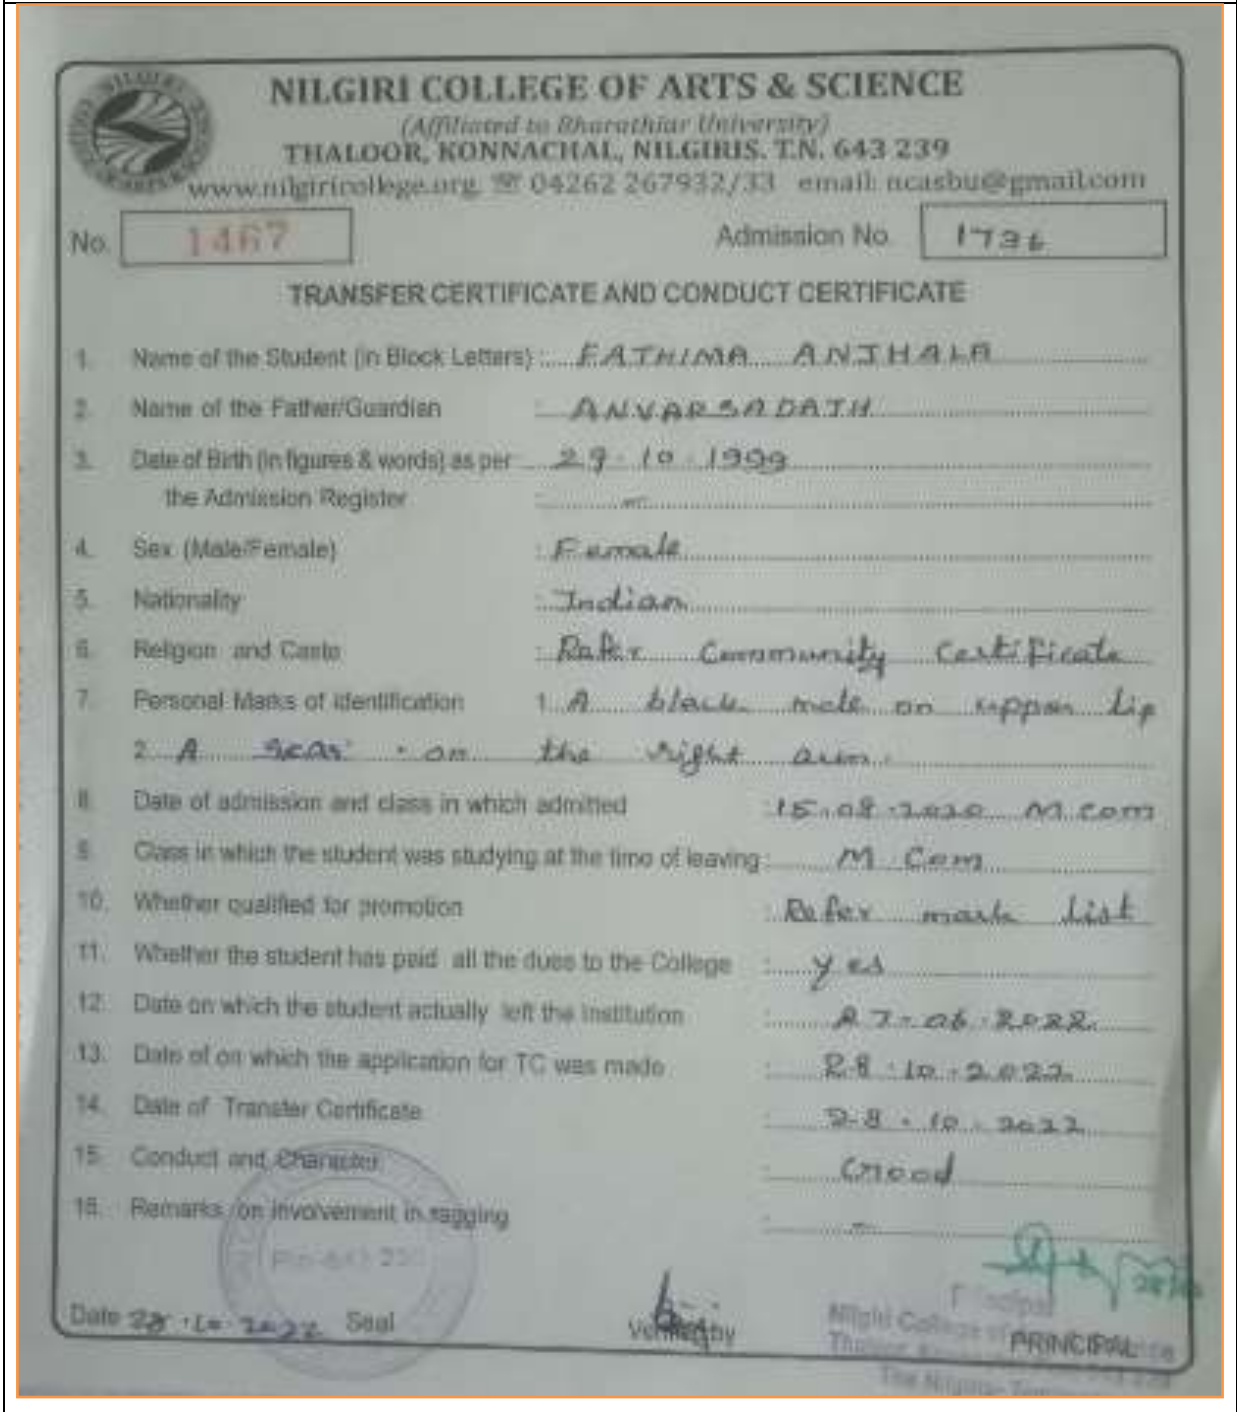 NILGIRI COLLEGE OF ARTS & SCIENCE
(Affiliated to Bharathiar University)
THALOOR, KONNACHAL, NILGIRIS. T.N. 643 239
www.nilgiricollege.org. ☏ 04262 267932/33 email: ncasbu@gmail.com
No. 1467 Admission No. 1736
TRANSFER CERTIFICATE AND CONDUCT CERTIFICATE
1. Name of the Student (in Block Letters) : FATHIMA ANJHALA
2. Name of the Father/Guardian : ANVARSADATH
3. Date of Birth (in figures & words) as per 29-10-1999
the Admission Register : -
4. Sex (Male/Female) : Female
5. Nationality : Indian
6. Religion and Caste : Refer Community Certificate
7. Personal Marks of Identification 1. A black mole on upper lip
2. A scar on the right arm.
8. Date of admission and class in which admitted : 15.08.2020 M.com
9. Class in which the student was studying at the time of leaving : M Com
10. Whether qualified for promotion : Refer mark list
11. Whether the student has paid all the dues to the College : yes
12. Date on which the student actually left the institution : 27-06-2022
13. Date of on which the application for TC was made : 28-10-2022
14. Date of Transfer Certificate : 28-10-2022
15. Conduct and Character : Good
16. Remarks on involvement in ragging : -
Pin-643 239
Date 28-10-2022 Seal Verified by Principal
Nilgiri College of
PRINCIPAL
The Nilgiris